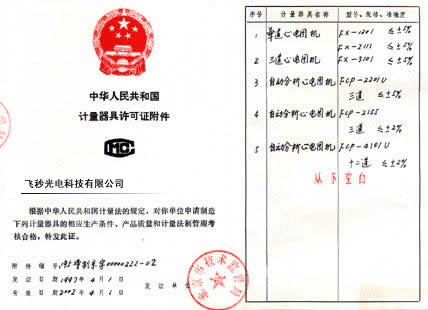 中华人民共和国
计量器具许可证附件
CMC
飞秒光电科技有限公司
根据中华人民共和国计量法的规定，对你单位申请制造
下列计量器具的相应生产条件、产品质量和计量法制管理考
核合格，特发此证。
附件编号：
发证日期 1997年4月1日
有效日期 2002年4月1日 发证单位
序号 计量器具名称 型号、规格、准确度
1 单道心电图机 FX-1201 ≤±5%
FX-2111 ≤±5%
2 三道心电图机 FX-3101 ≤±5%
3 自动分析心电图机 FCP-2201U
三道 ≤±5%
4 自动分析心电图机 FCP-2155
三道 ≤±2%
5 自动分析心电图机 FCP-4101U
十二道 ≤±2%
以下空白